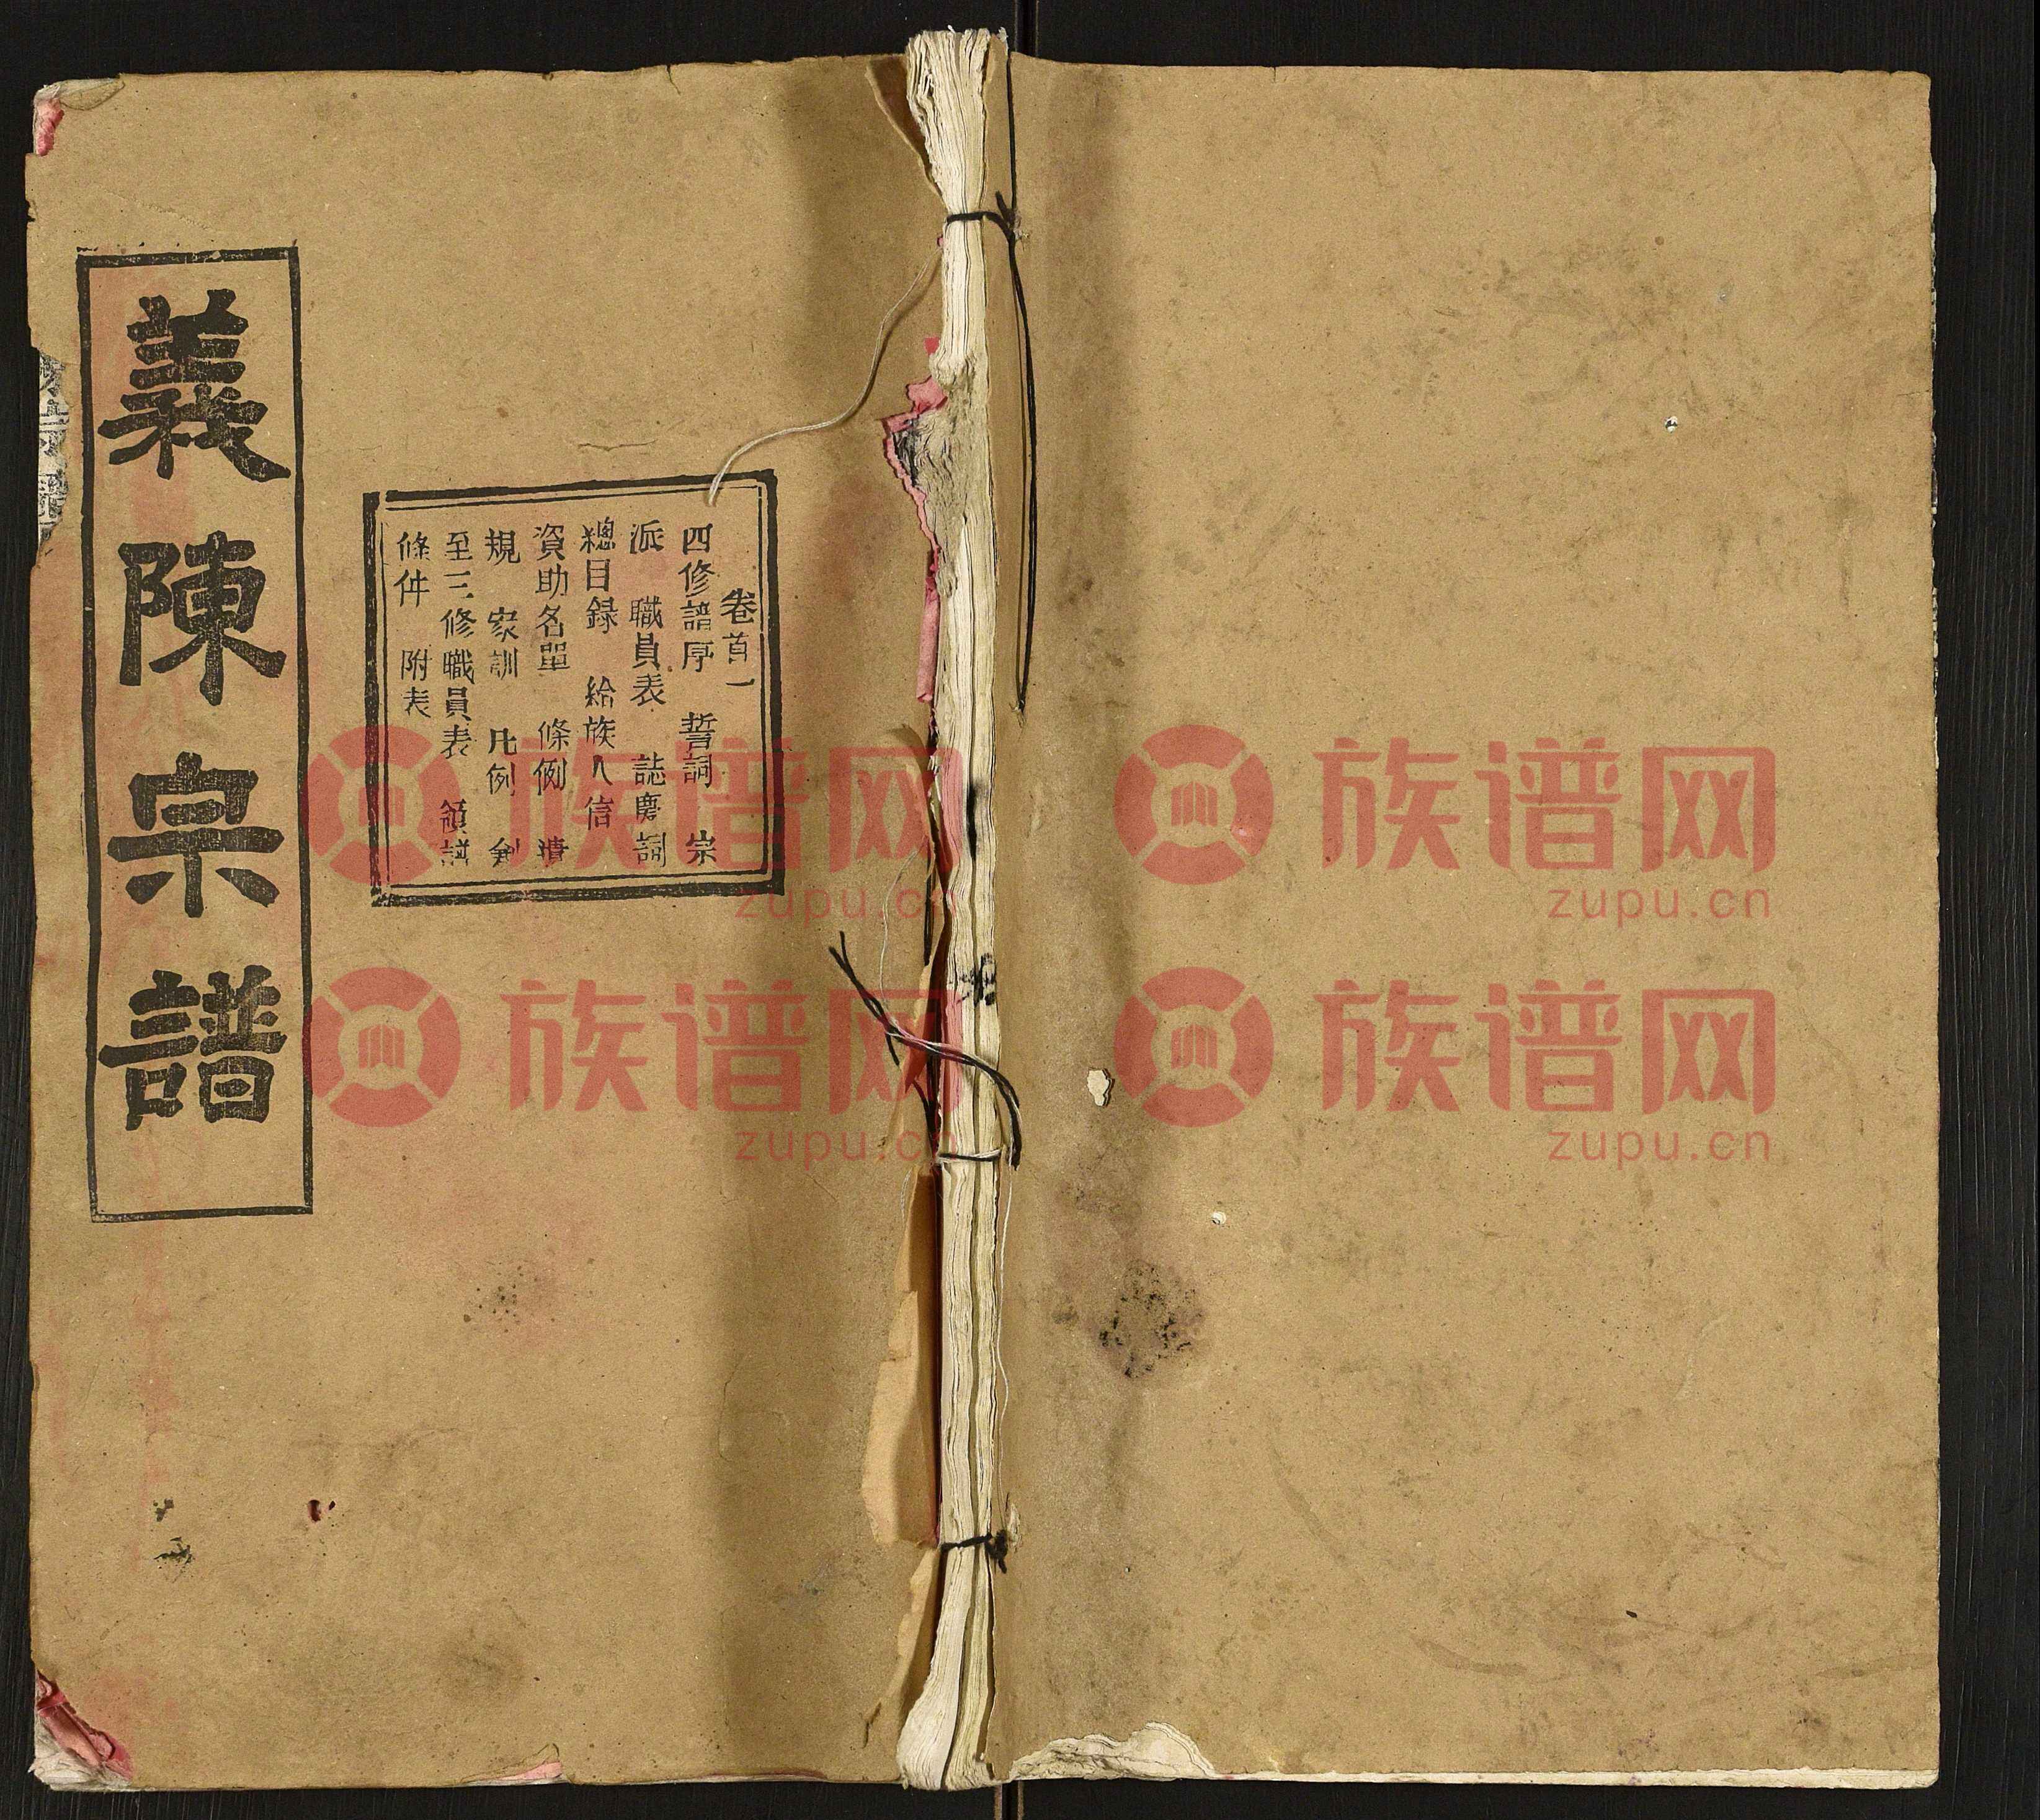 義陳宗譜
卷首一
四修譜序 誓詞 宗
派 職員表 誌慶詞
總目錄 給族人信
資助名單 條例 清
規 家訓 凡例 創
至三修職員表 領譜
條件 附表
族谱网
zupu.cn
族谱网
zupu.cn
族谱网
zupu.cn
族谱网
zupu.cn